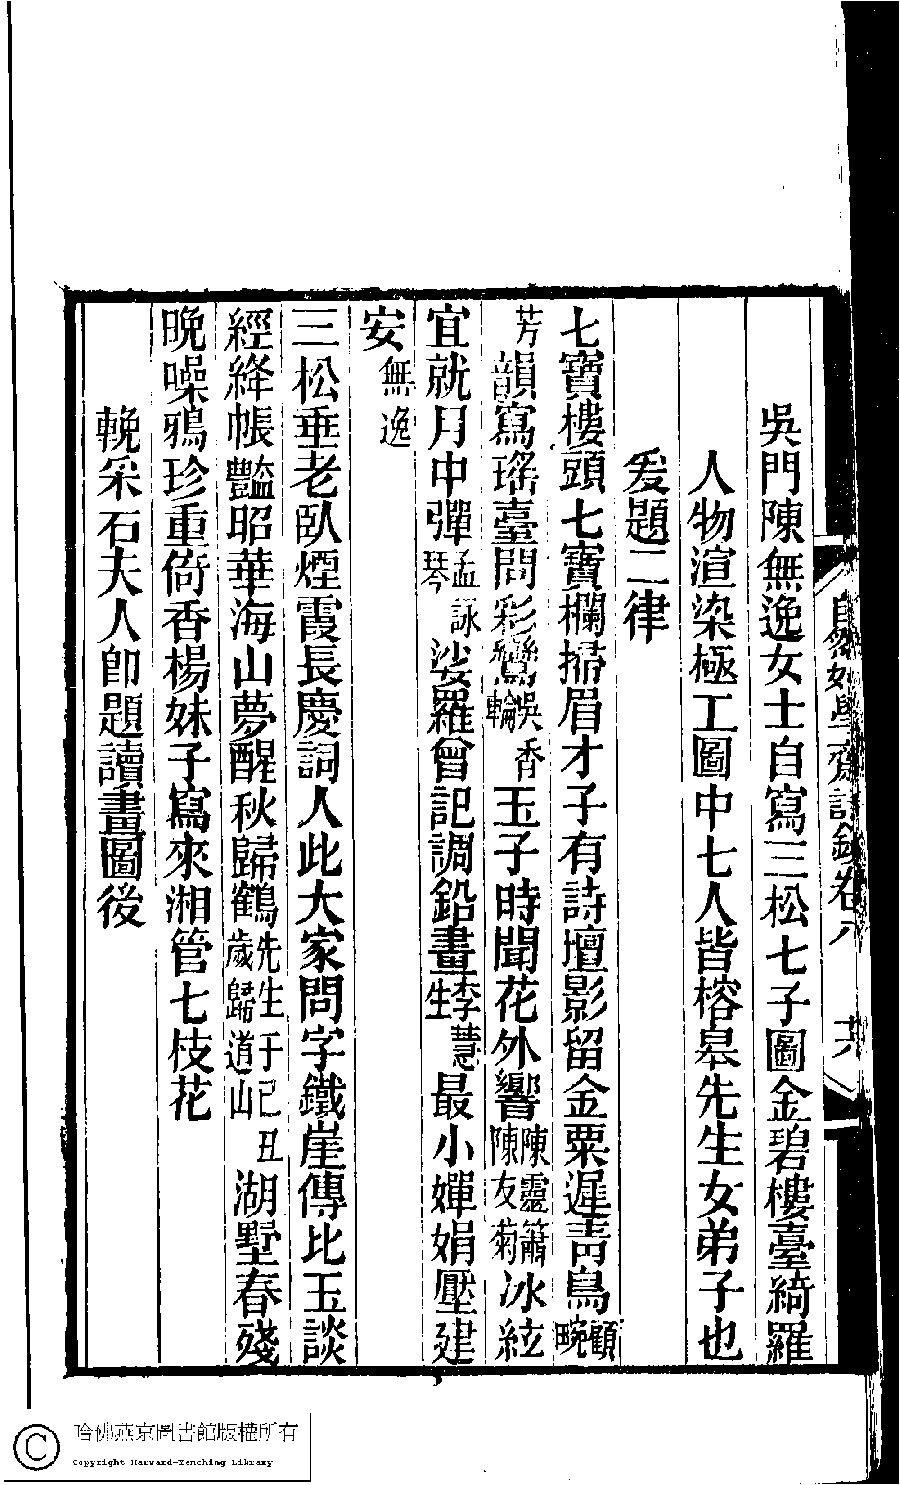 自然好學齋詩鈔卷八 十六
吳門陳無逸女士自寫三松七子圖金碧樓臺綺羅
人物渲染極工圖中七人皆榕皋先生女弟子也
爰題二律
七寶樓頭七寶欄掃眉才子有詩壇影留金粟遲青鳥顧畹
芳韻寫瑤臺問彩鸞吳香輪玉子時聞花外響陳靈簫陳友菊冰絃
宜就月中彈孟詠琴娑羅曾記調鉛畫李慧生最小嬋娟壓建
安無逸
三松垂老臥煙霞長慶詞人此大家問字鐵崖傳比玉談
經絳帳豔昭華海山夢醒秋歸鶴先生于己丑歲歸道山湖墅春殘
晚噪鴉珍重倚香楊妹子寫來湘管七枝花
輓采石夫人卽題讀畫圖後
哈佛燕京圖書館版權所有
Copyright Harvard-Yenching Library